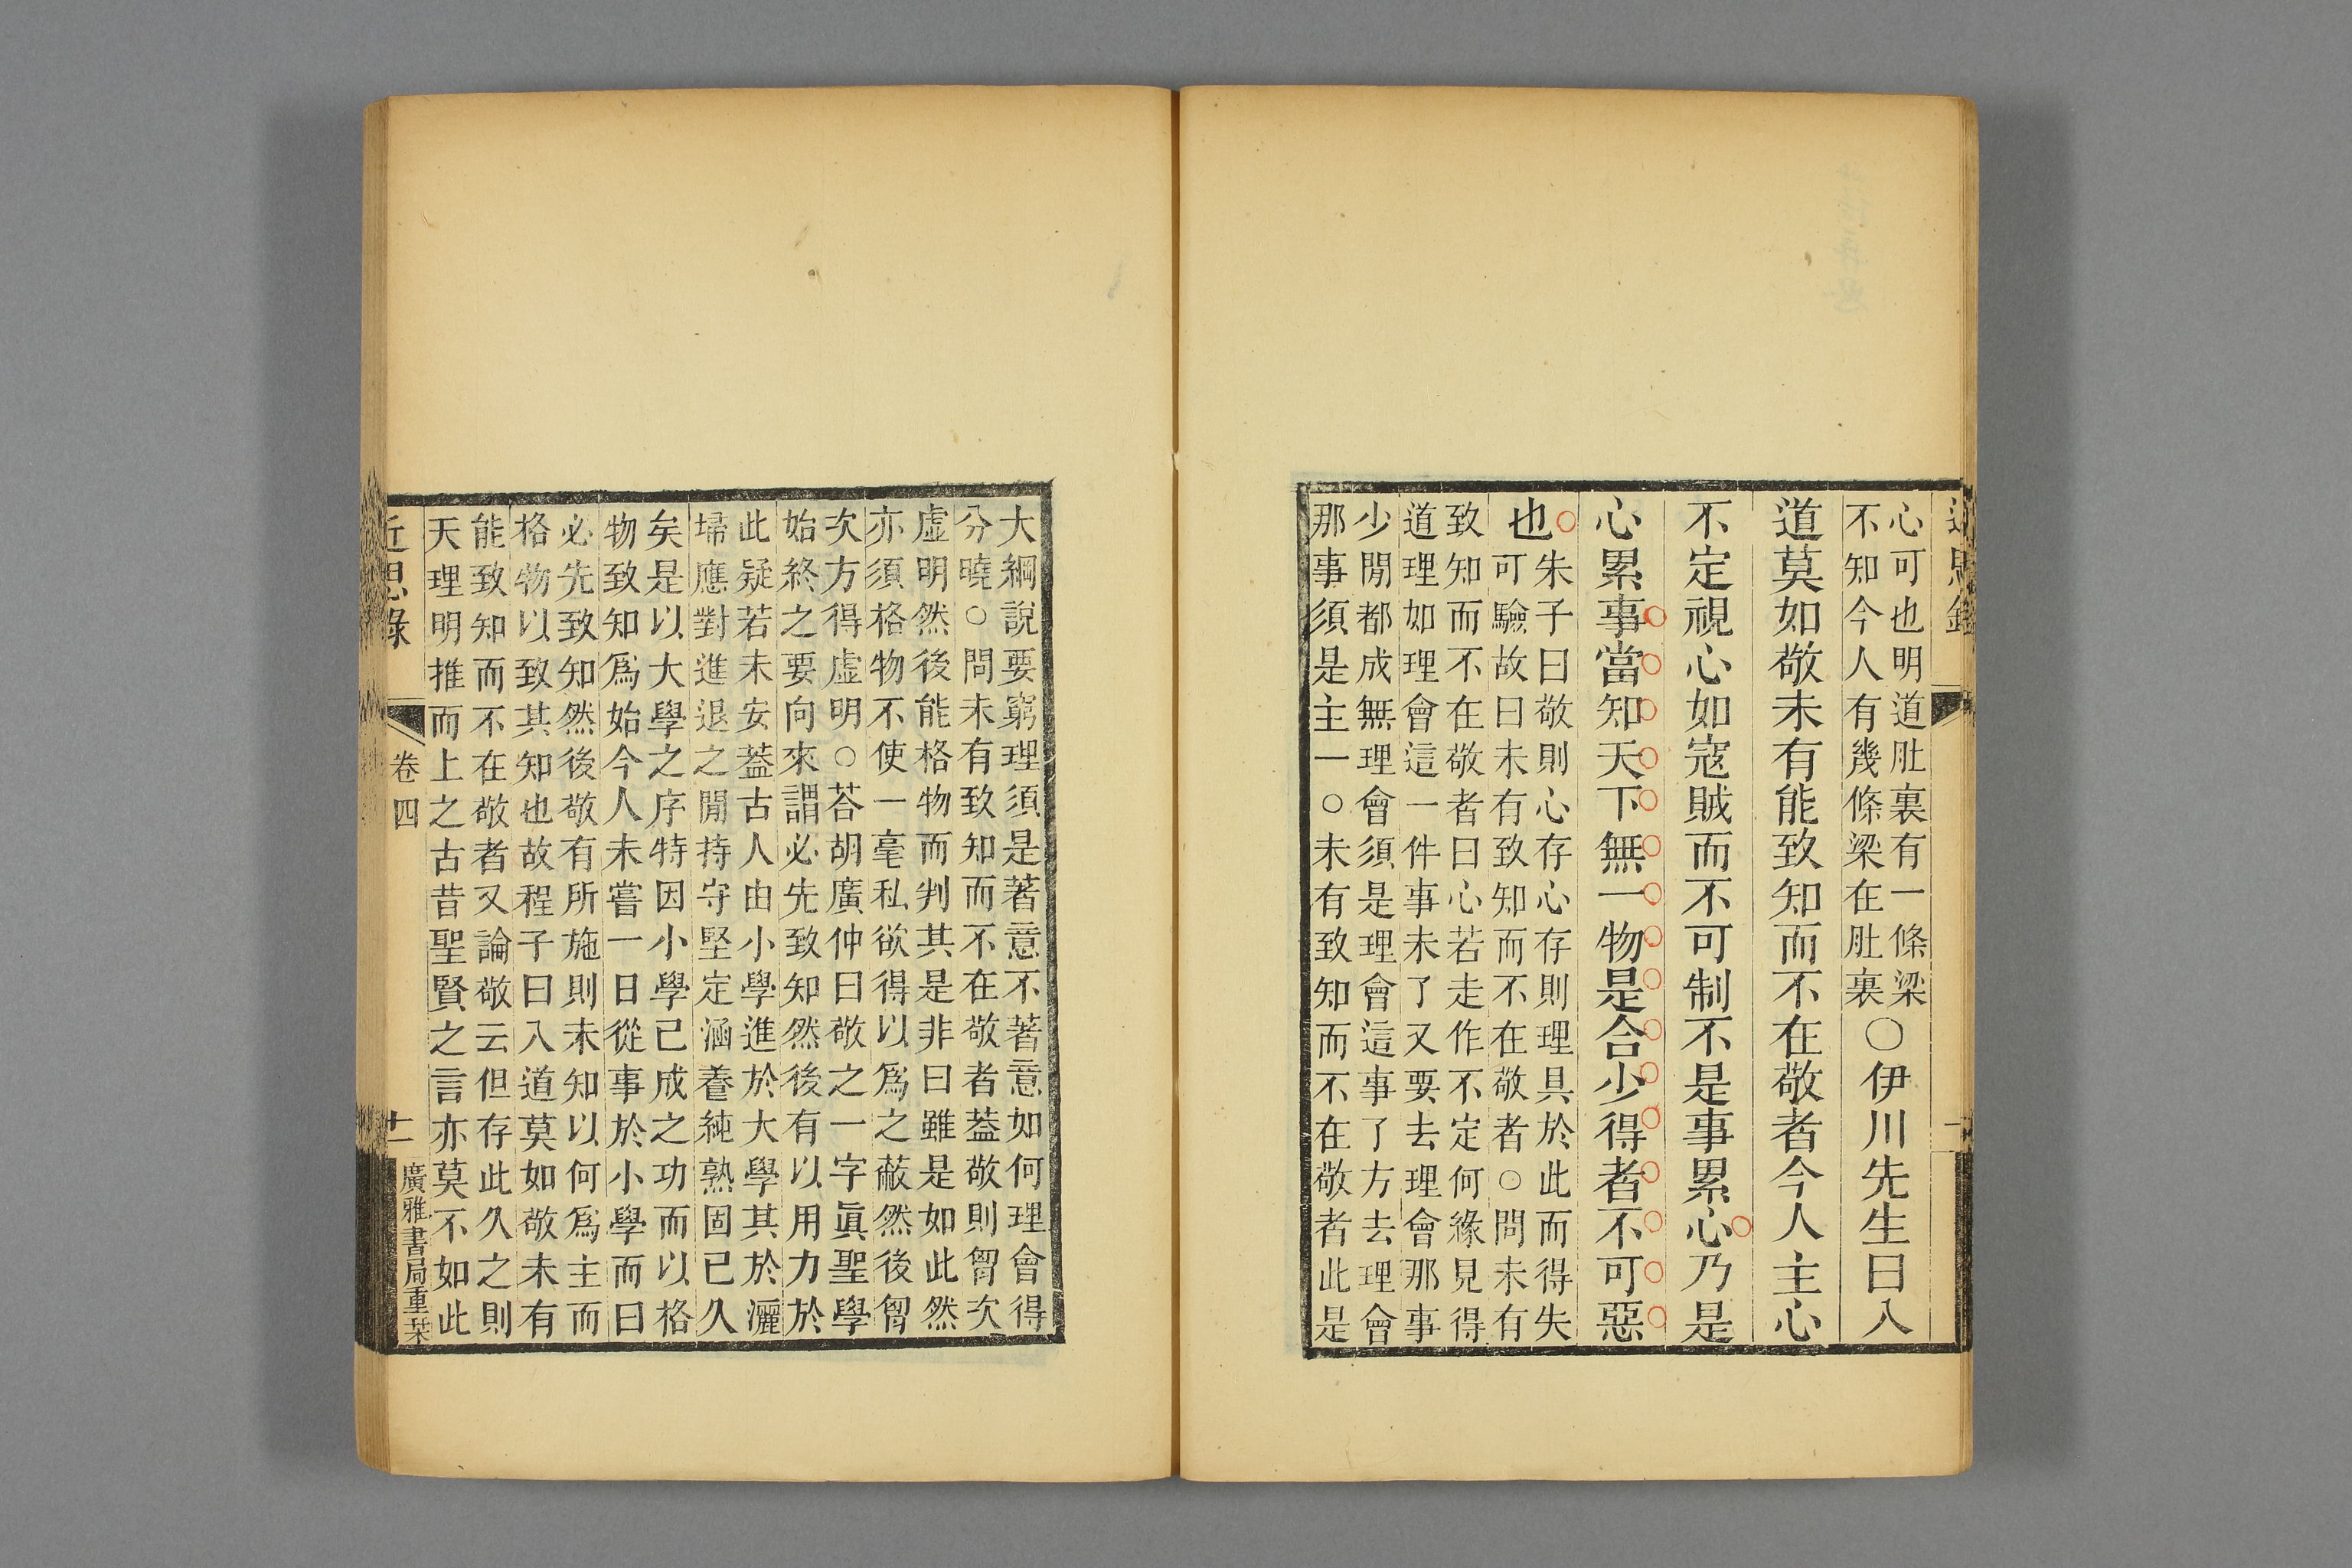 心可也明道肚裏有一條梁
不知今人有幾條梁在肚裏
○伊川先生曰入
道莫如敬未有能致知而不在敬者今人主心
不定視心如寇賊而不可制不是事累心乃是
心累事當知天下無一物是合少得者不可惡
也
朱子曰敬則心存心存則理具於此而得失
可驗故曰未有致知而不在敬者○問未有
致知而不在敬者曰心若走作不定何緣見得
道理如理會這一件事未了又要去理會那事
少閒都成無理會須是理會這事了方去理會
那事須是主一○未有致知而不在敬者此是
大綱說要窮理須是著意不著意如何理會得
分曉○問未有致知而不在敬者葢敬則胷次
虛明然後能格物而判其是非曰雖是如此然
亦須格物不使一毫私欲得以爲之蔽然後胷
次方得虛明○荅胡廣仲曰敬之一字眞聖學
始終之要向來謂必先致知然後有以用力於
此疑若未安葢古人由小學進於大學其於灑
埽應對進退之閒持守堅定涵養純熟固已久
矣是以大學之序特因小學已成之功而以格
物致知爲始今人未嘗一日從事於小學而曰
必先致知然後敬有所施則未知以何爲主而
格物以致其知也故程子曰入道莫如敬未有
能致知而不在敬者又論敬云但存此久之則
天理明推而上之古昔聖賢之言亦莫不如此
近思錄
卷四
十一
廣雅書局重栞